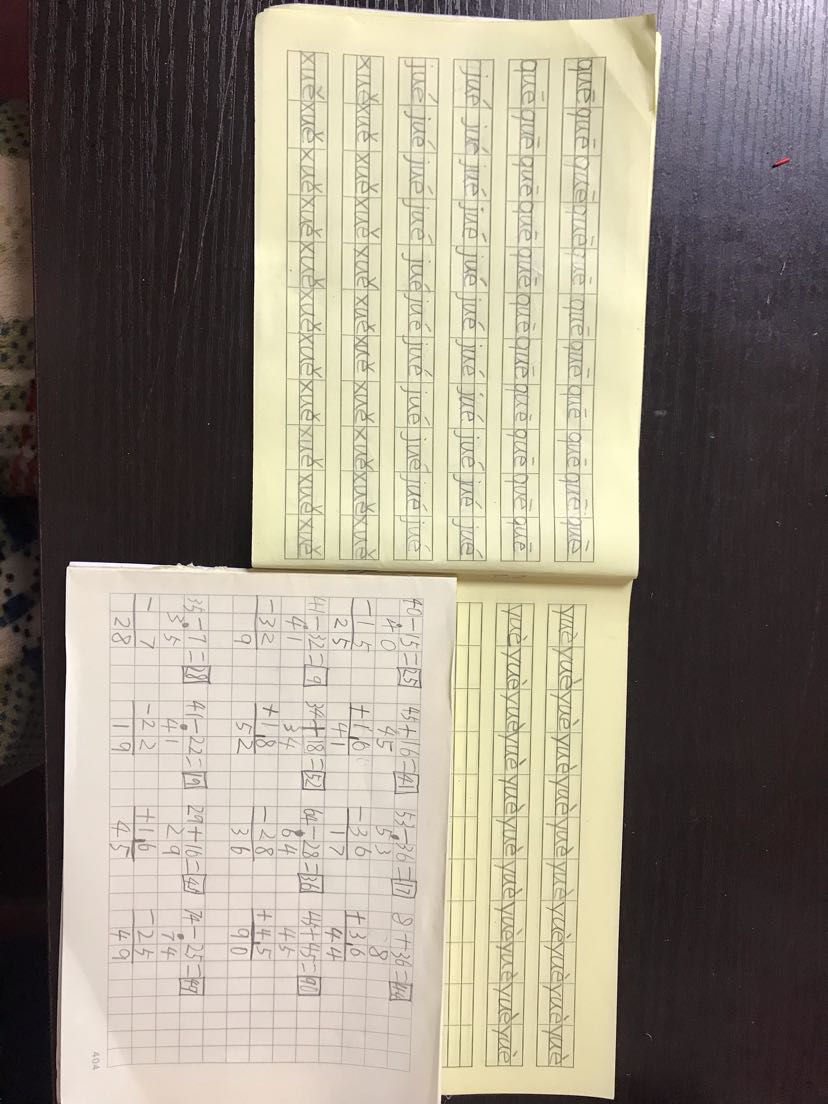 quē quē quē quē quē quē quē quē quē quē quē
quē quē quē quē quē quē quē quē quē quē quē
jué jué jué jué jué jué jué jué jué jué jué
jué jué jué jué jué jué jué jué jué jué jué
xuě xuě xuě xuě xuě xuě xuě xuě xuě xuě xuě
xuě xuě xuě xuě xuě xuě xuě xuě xuě xuě xuě
yuè yuè yuè yuè yuè yuè yuè yuè yuè yuè yuè
yuè yuè yuè yuè yuè yuè yuè yuè yuè yuè yuè
40-15=25 45+16=41 53-36=17 8+36=44
40 45 53 8
-15 +16 -36 +36
25 41 17 44
41-32=9 34+18=52 64-28=36 45+45=90
41 34 64 45
-32 +18 -28 +45
9 52 36 90
35-7=28 41-22=19 29+16=45 74-25=49
35 41 29 74
-7 -22 +16 -25
28 19 45 49
404